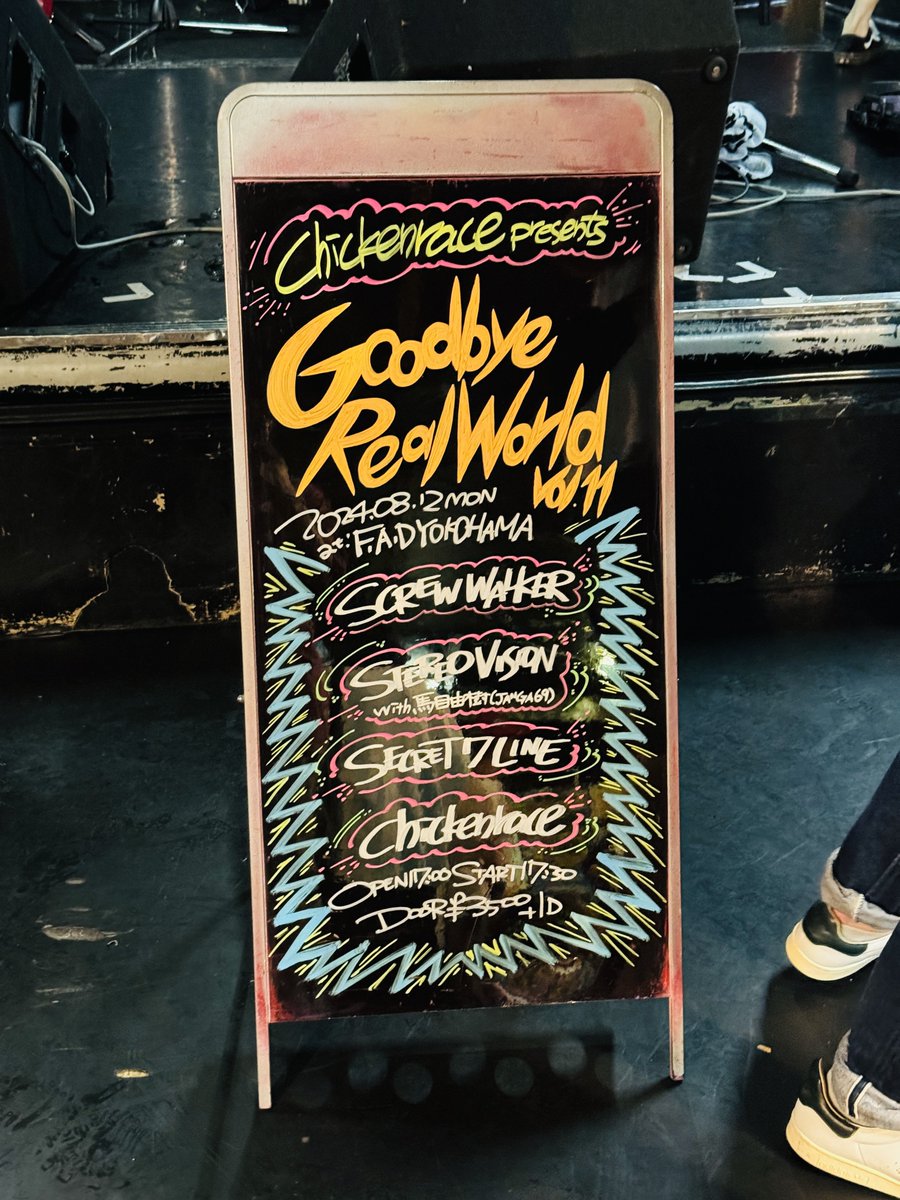 Chickenrace presents
Goodbye
Real World
Vol.11
2024.08.12 MON
at: F.A.D YOKOHAMA
SCREW WALKER
STEREO VISION
with 馬自由樹(JANGA69)
SECRET 7 LINE
Chickenrace
OPEN 17:00 START 17:30
DOOR ¥3500 +1D